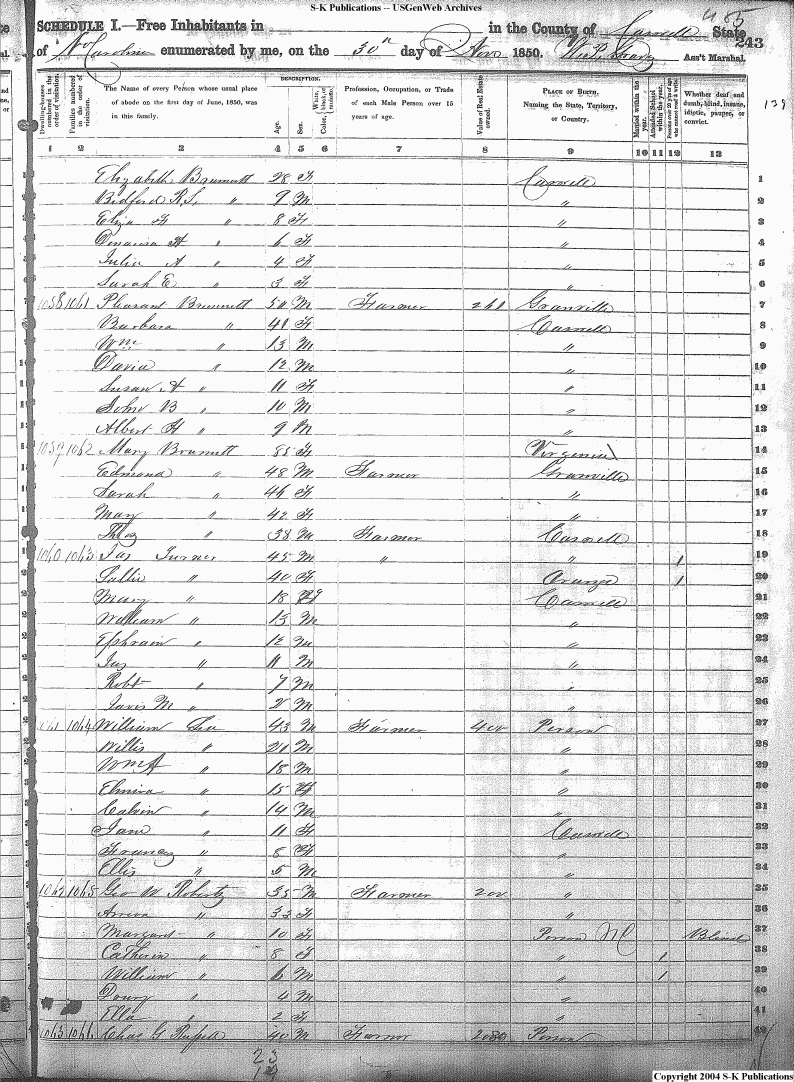 S-K Publications -- USGenWeb Archives
465
SCHEDULE I.—Free Inhabitants in in the County of Caswell State
243
of No Carolina enumerated by me, on the 30th day of Nov 1850. Ass't Marshal.
139
Dwelling-houses numbered in the order of visitation.
Families numbered in the order of visitation.
The Name of every Person whose usual place of abode on the first day of June, 1850, was in this family.
DESCRIPTION.
Age.
Sex.
Color, White, black, or mulatto.
Profession, Occupation, or Trade of each Male Person over 15 years of age.
Value of Real Estate owned.
PLACE OF BIRTH. Naming the State, Territory, or Country.
Married within the year.
Attended School within the year.
Persons over 20 y'rs of age who cannot read & write.
Whether deaf and dumb, blind, insane, idiotic, pauper, or convict.
1 2 3 4 5 6 7 8 9 10 11 12 13
Elizabeth Brummett 28 F Caswell 1
Bidford R.S. " 9 M " 2
Eliza F " 8 F " 3
A " 6 F " 4
Julia A " 4 F " 5
Sarah E " 3 F " 6
1058 1061 Pleasant Brummett 50 M Farmer 260 Granville 7
Barbara " 41 F Caswell 8
Wm " 13 M " 9
David " 12 M " 10
Susan A " 11 F " 11
John B " 10 M " 12
Albert H " 9 M " 13
1059 1062 Mary Brumett 85 F Virginia 14
Edmond " 48 M Farmer Granville 15
Sarah " 46 F " 16
Mary " 42 F " 17
Thos " 38 M Farmer Caswell 18
1060 1063 Jas Turner 45 M " " 1 19
Sallie " 40 F Orange 1 20
Mary " 18 F Caswell 21
William " 13 M " 22
Ephraim " 12 M " 23
Jas " 11 M " 24
Robt " 7 M " 25
M " 2 M " 26
1061 1064 William Lea 43 M Farmer 400 Person 27
Willis " 21 M " 28
Wm A " 18 M " 29
Elmira " 15 F " 30
Calvin " 14 M " 31
Jane " 11 F Caswell 32
Frances " 8 F " 33
Ellis " 5 M " 34
1062 1065 Geo W Roberts 35 M Farmer 200 " 35
" 33 F " 36
Margaret " 10 F Person NC Blind 37
Catherin " 8 F " 1 38
William " 6 M " 1 39
" 4 M " 40
Ella " 2 F " 41
1063 1066 Chas G Russell 40 M Farmer 2080 Person 42
23
Copyright 2004 S-K Publications